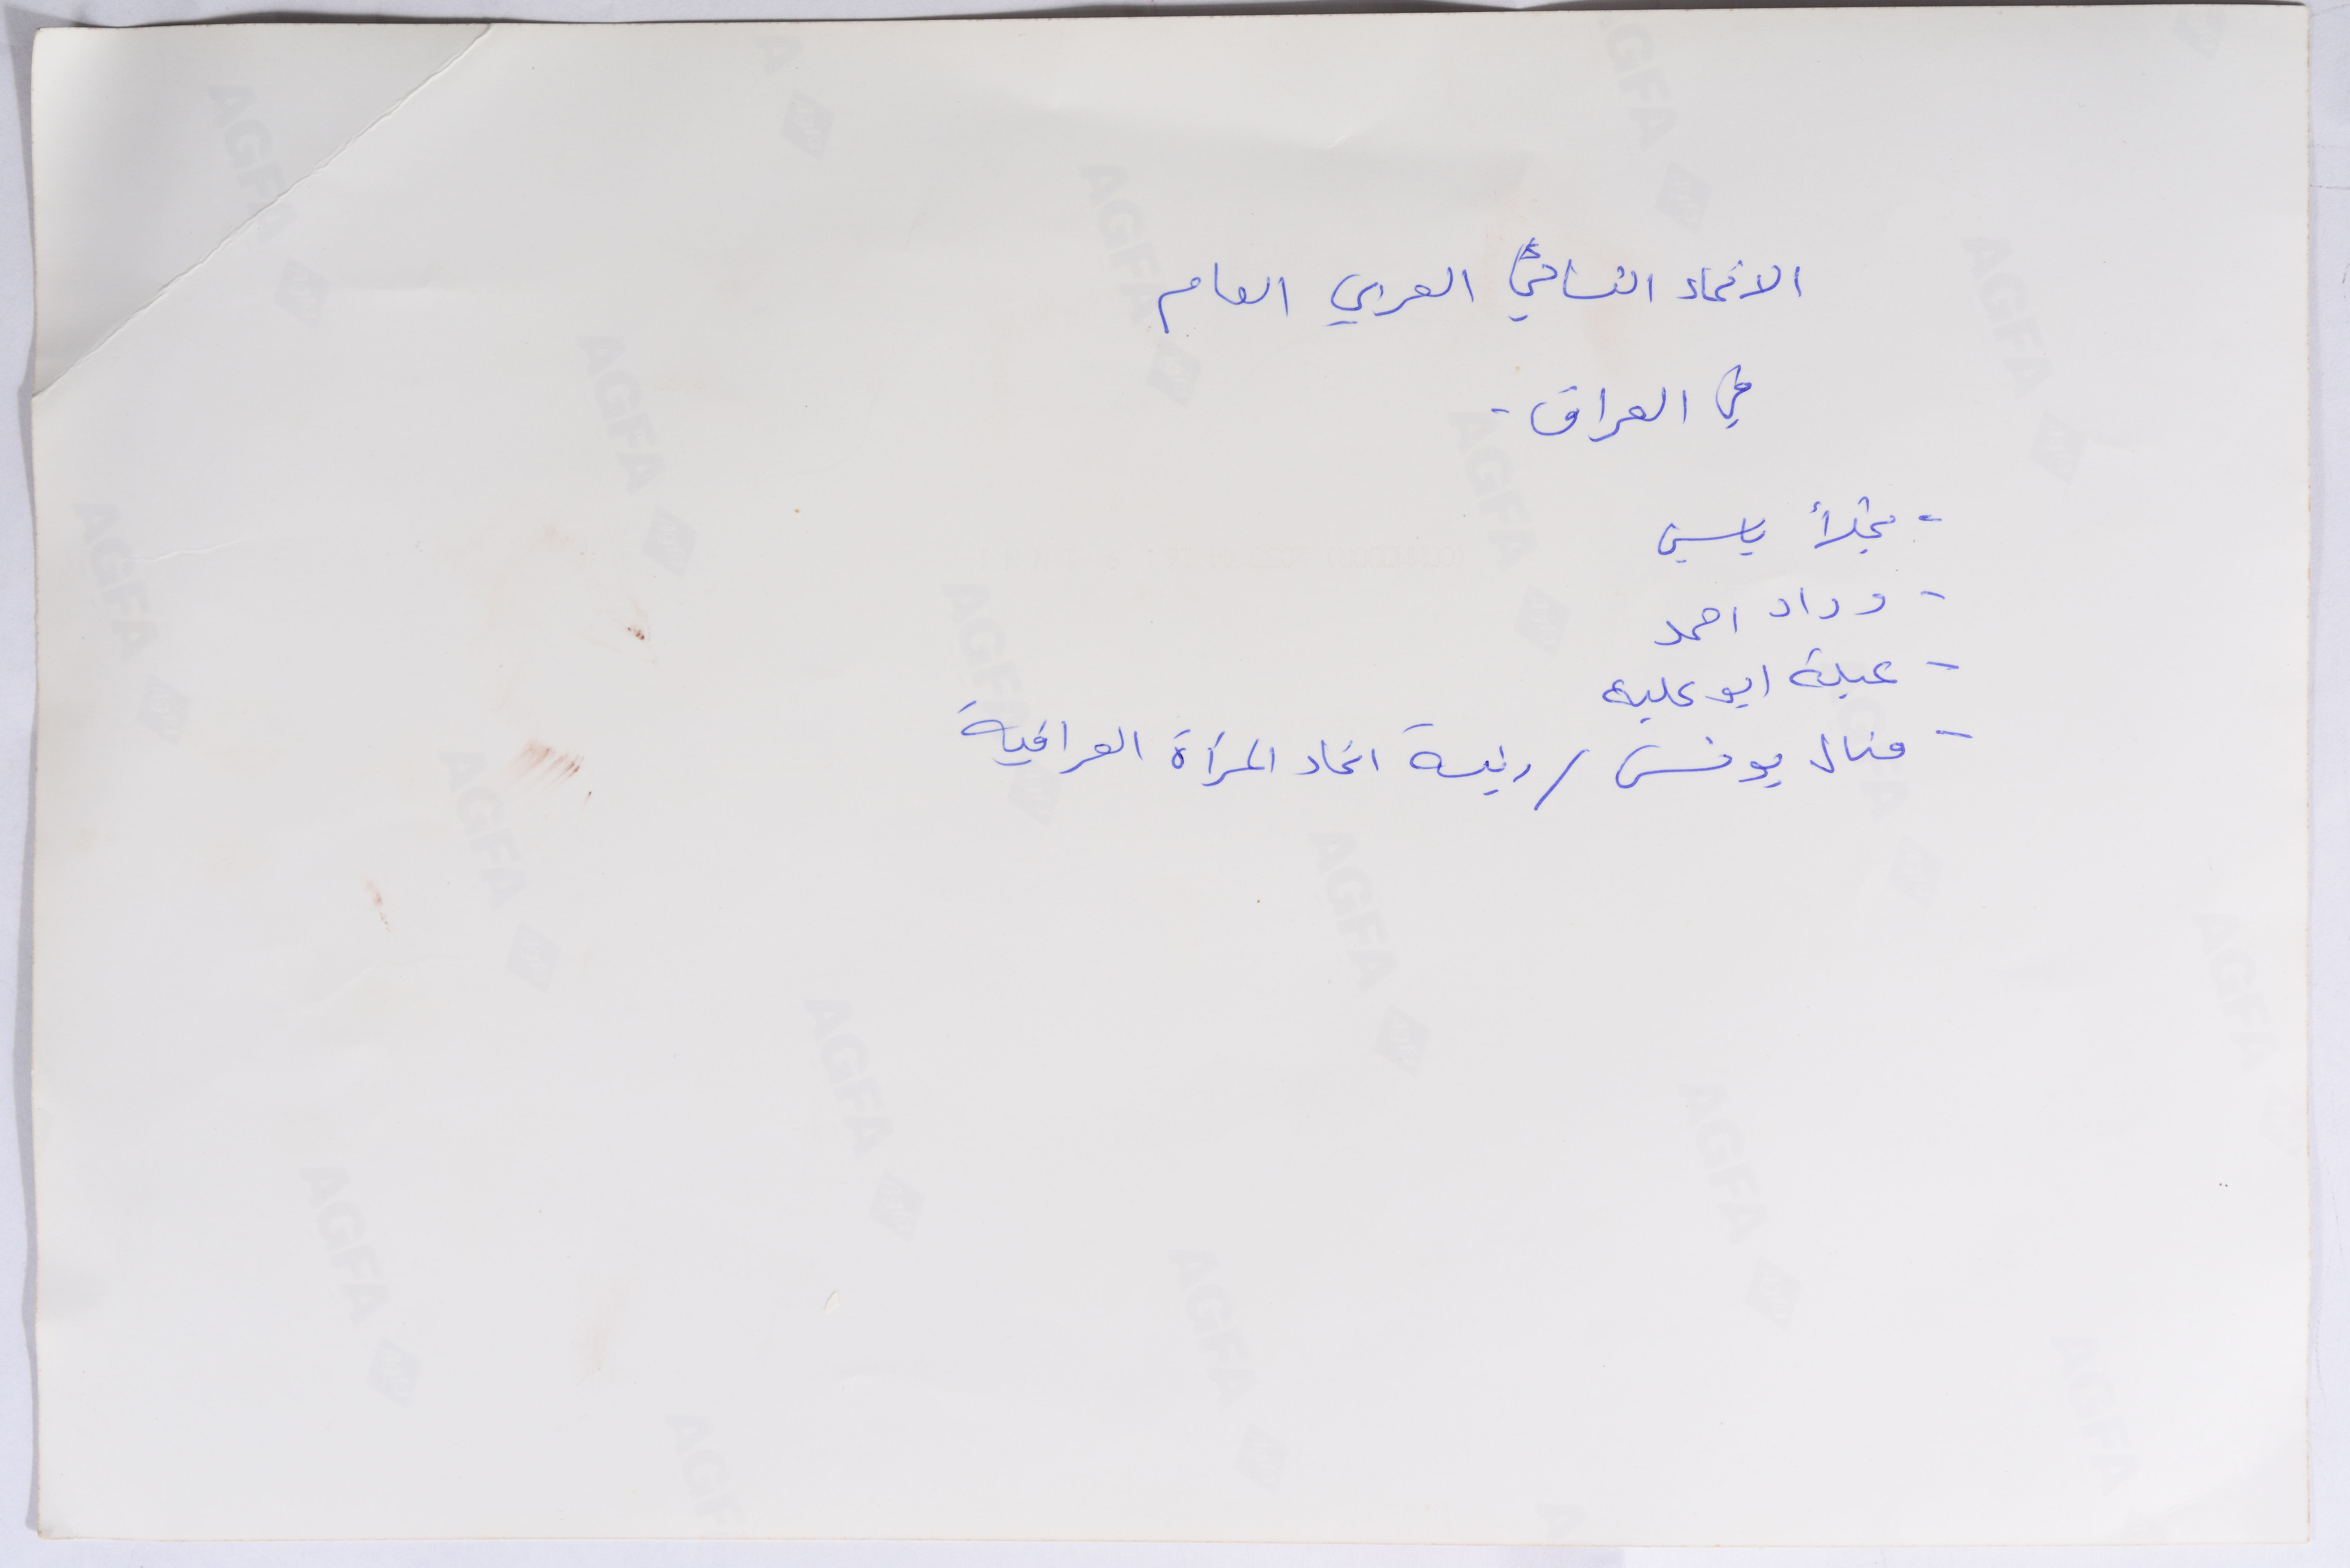 الاتحاد النسائي العربي العام
في العراق -
- نجلأ ياسين
- وداد احمد
- عبلة ابو علبة
- منال يونس / رئيسة اتحاد المرأة العراقية
AGFA